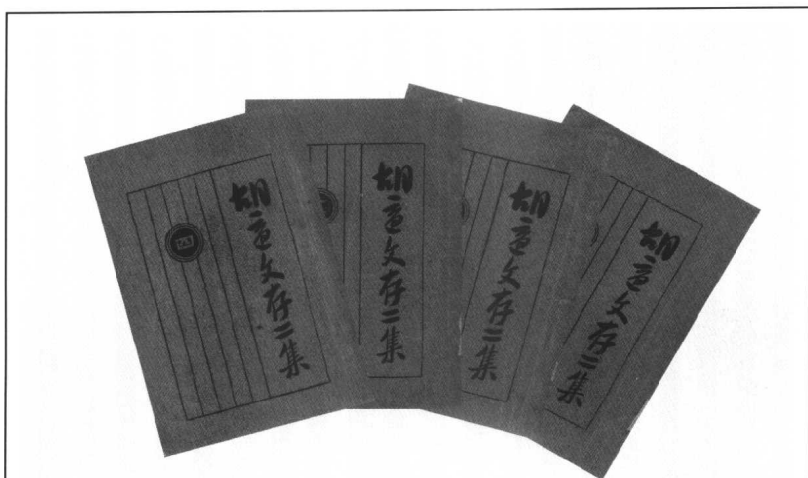 胡适文存二集
四
胡适文存二集
胡适文存二集
胡适文存二集